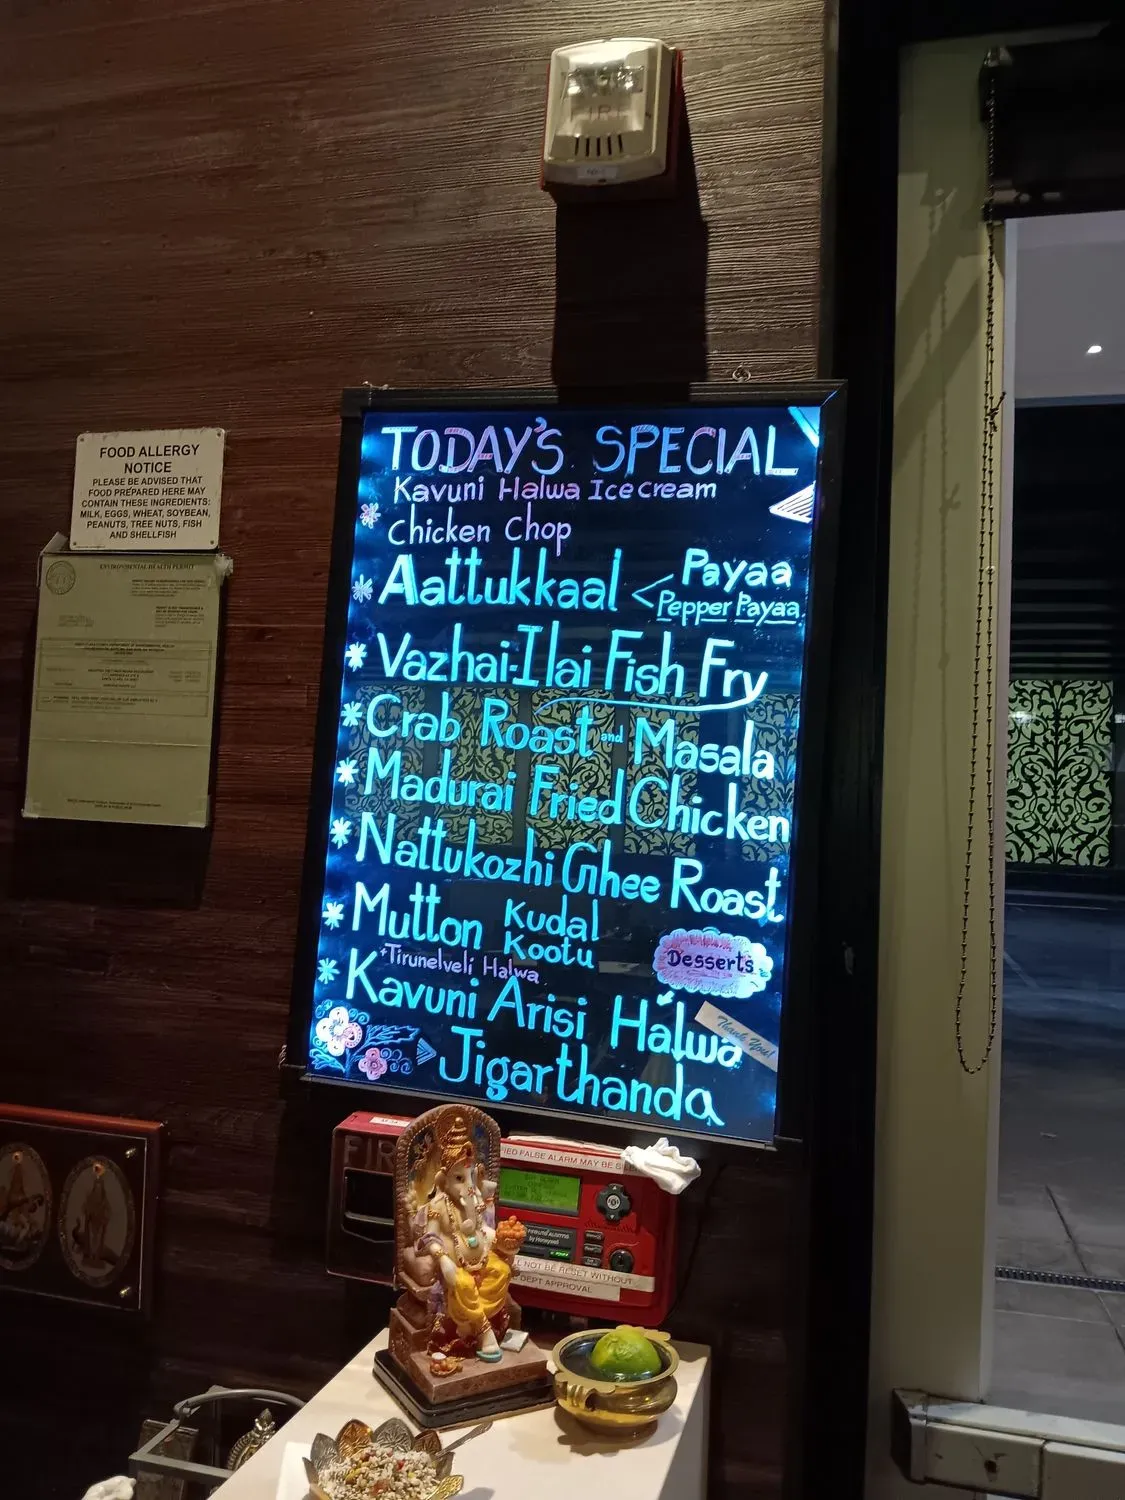 FIRE
TODAY'S SPECIAL
Kavuni Halwa Ice cream
Chicken Chop
Aattukkaal < Payaa
Pepper Payaa
Vazhai-Ilai Fish Fry
Crab Roast and Masala
Madurai Fried Chicken
Nattukozhi Ghee Roast
Mutton Kudal
Kootu
Desserts
+Tirunelveli Halwa
Kavuni Arisi Halwa
Thank You!
Jigarthanda
FOOD ALLERGY
NOTICE
PLEASE BE ADVISED THAT
FOOD PREPARED HERE MAY
CONTAIN THESE INGREDIENTS:
MILK, EGGS, WHEAT, SOYBEAN,
PEANUTS, TREE NUTS, FISH
AND SHELLFISH
ENVIRONMENTAL HEALTH PERMIT
FIRE
FALSE ALARM MAY BE
by Honeywell
NOT BE RESET WITHOUT
DEPT APPROVAL